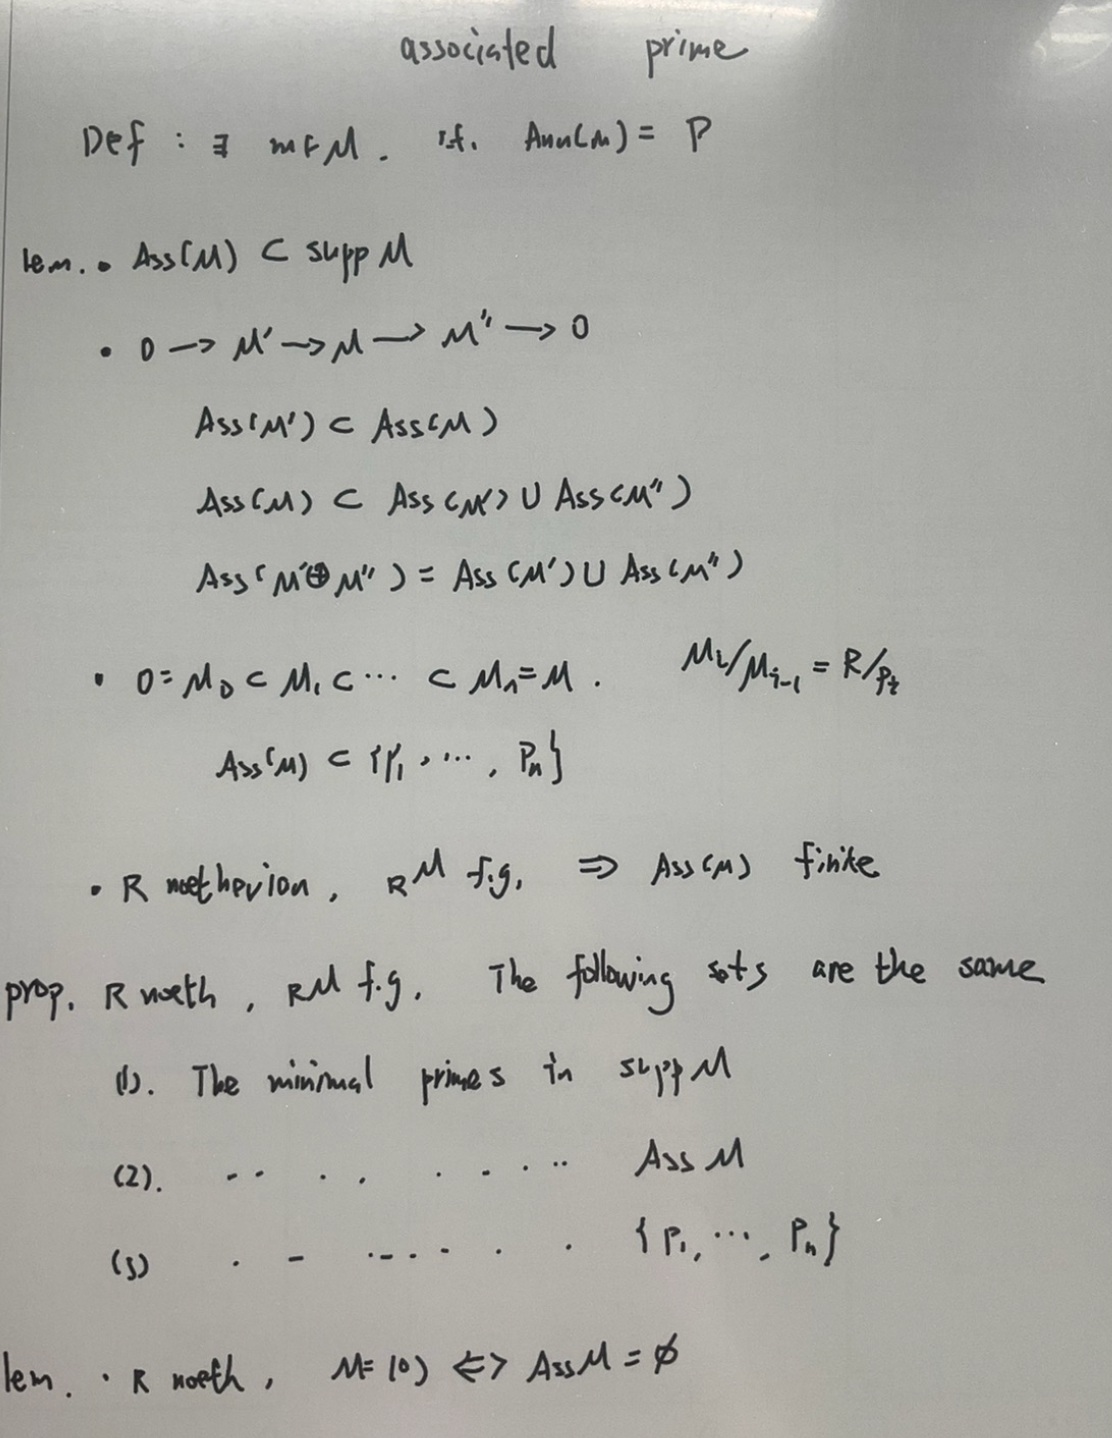 associated prime
Def : ∃ m∈M. s.t. Ann(m) = P
lem. • Ass(M) ⊂ supp M
• 0 → M' → M → M'' → 0
Ass(M') ⊂ Ass(M)
Ass(M) ⊂ Ass(M') ∪ Ass(M'')
Ass(M'⊕M'') = Ass(M') ∪ Ass(M'')
• 0 = M₀ ⊂ M₁ ⊂ ··· ⊂ Mₙ = M. Mᵢ/Mᵢ₋₁ = R/Pᵢ
Ass(M) ⊂ {P₁, ···, Pₙ}
• R noetherian, RM f.g. ⇒ Ass(M) finite
prop. R noeth, RM f.g. The following sets are the same
(1). The minimal primes in supp M
(2). ·· · · · · · ·· Ass M
(3) · – ·-·· · · {P₁, ···, Pₙ}
lem. · R noeth, M = (0) ⇔ Ass M = ∅